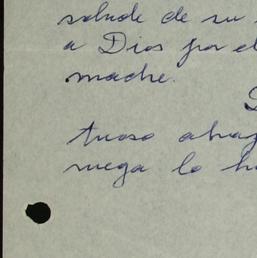 salude de su
a Dios por el
madre.
tuoso abraz
ruega lo ha